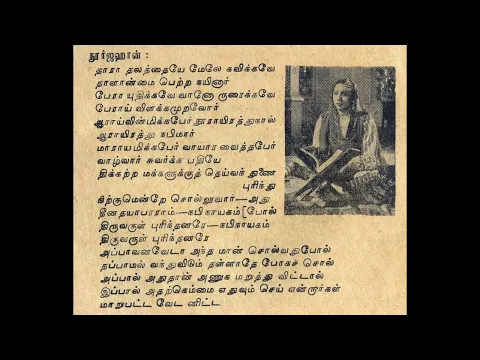 நூர்ஜஹான் :
தாரா தலத்தையே மேலே கவிக்கவே
தாளாண்மை பெற்ற நயினார்
பேரா யுதிக்கவே வானோ ருரைக்கவே
பேராய் விளக்கமுறவோர்
ஆராய்வின்மிக்கபேர் நூராயிரத்துநால்
ஆராயிரத்து நபிமார்
மாராயமிக்கபேர் வாயார வைத்தபேர்
வாழ்வார் சுவர்க்க பதியே
திக்கற்ற மக்களுக்குத் தெய்வந் துணை
புரிந்து
நிற்குமென்றே சொல்லுவார்—அது
தீனதயாபரராம்—நபிநாயகம் [போல்
திருவருள் புரிந்தனரே—நபிநாயகம்
திருவருள் புரிந்தனரே
அப்பாவனவேடா அந்த மான் சொல்வதுபோல்
தப்பாமல் வந்துவிடும் தள்ளாதே போகச் சொல்
அப்பால் அதுதான் அணுக மறுத்து விட்டால்
இப்பால் அதற்கெம்மை எதுவும் செய் என்றார்கள்
மாறுபட்ட வேட னிட்ட